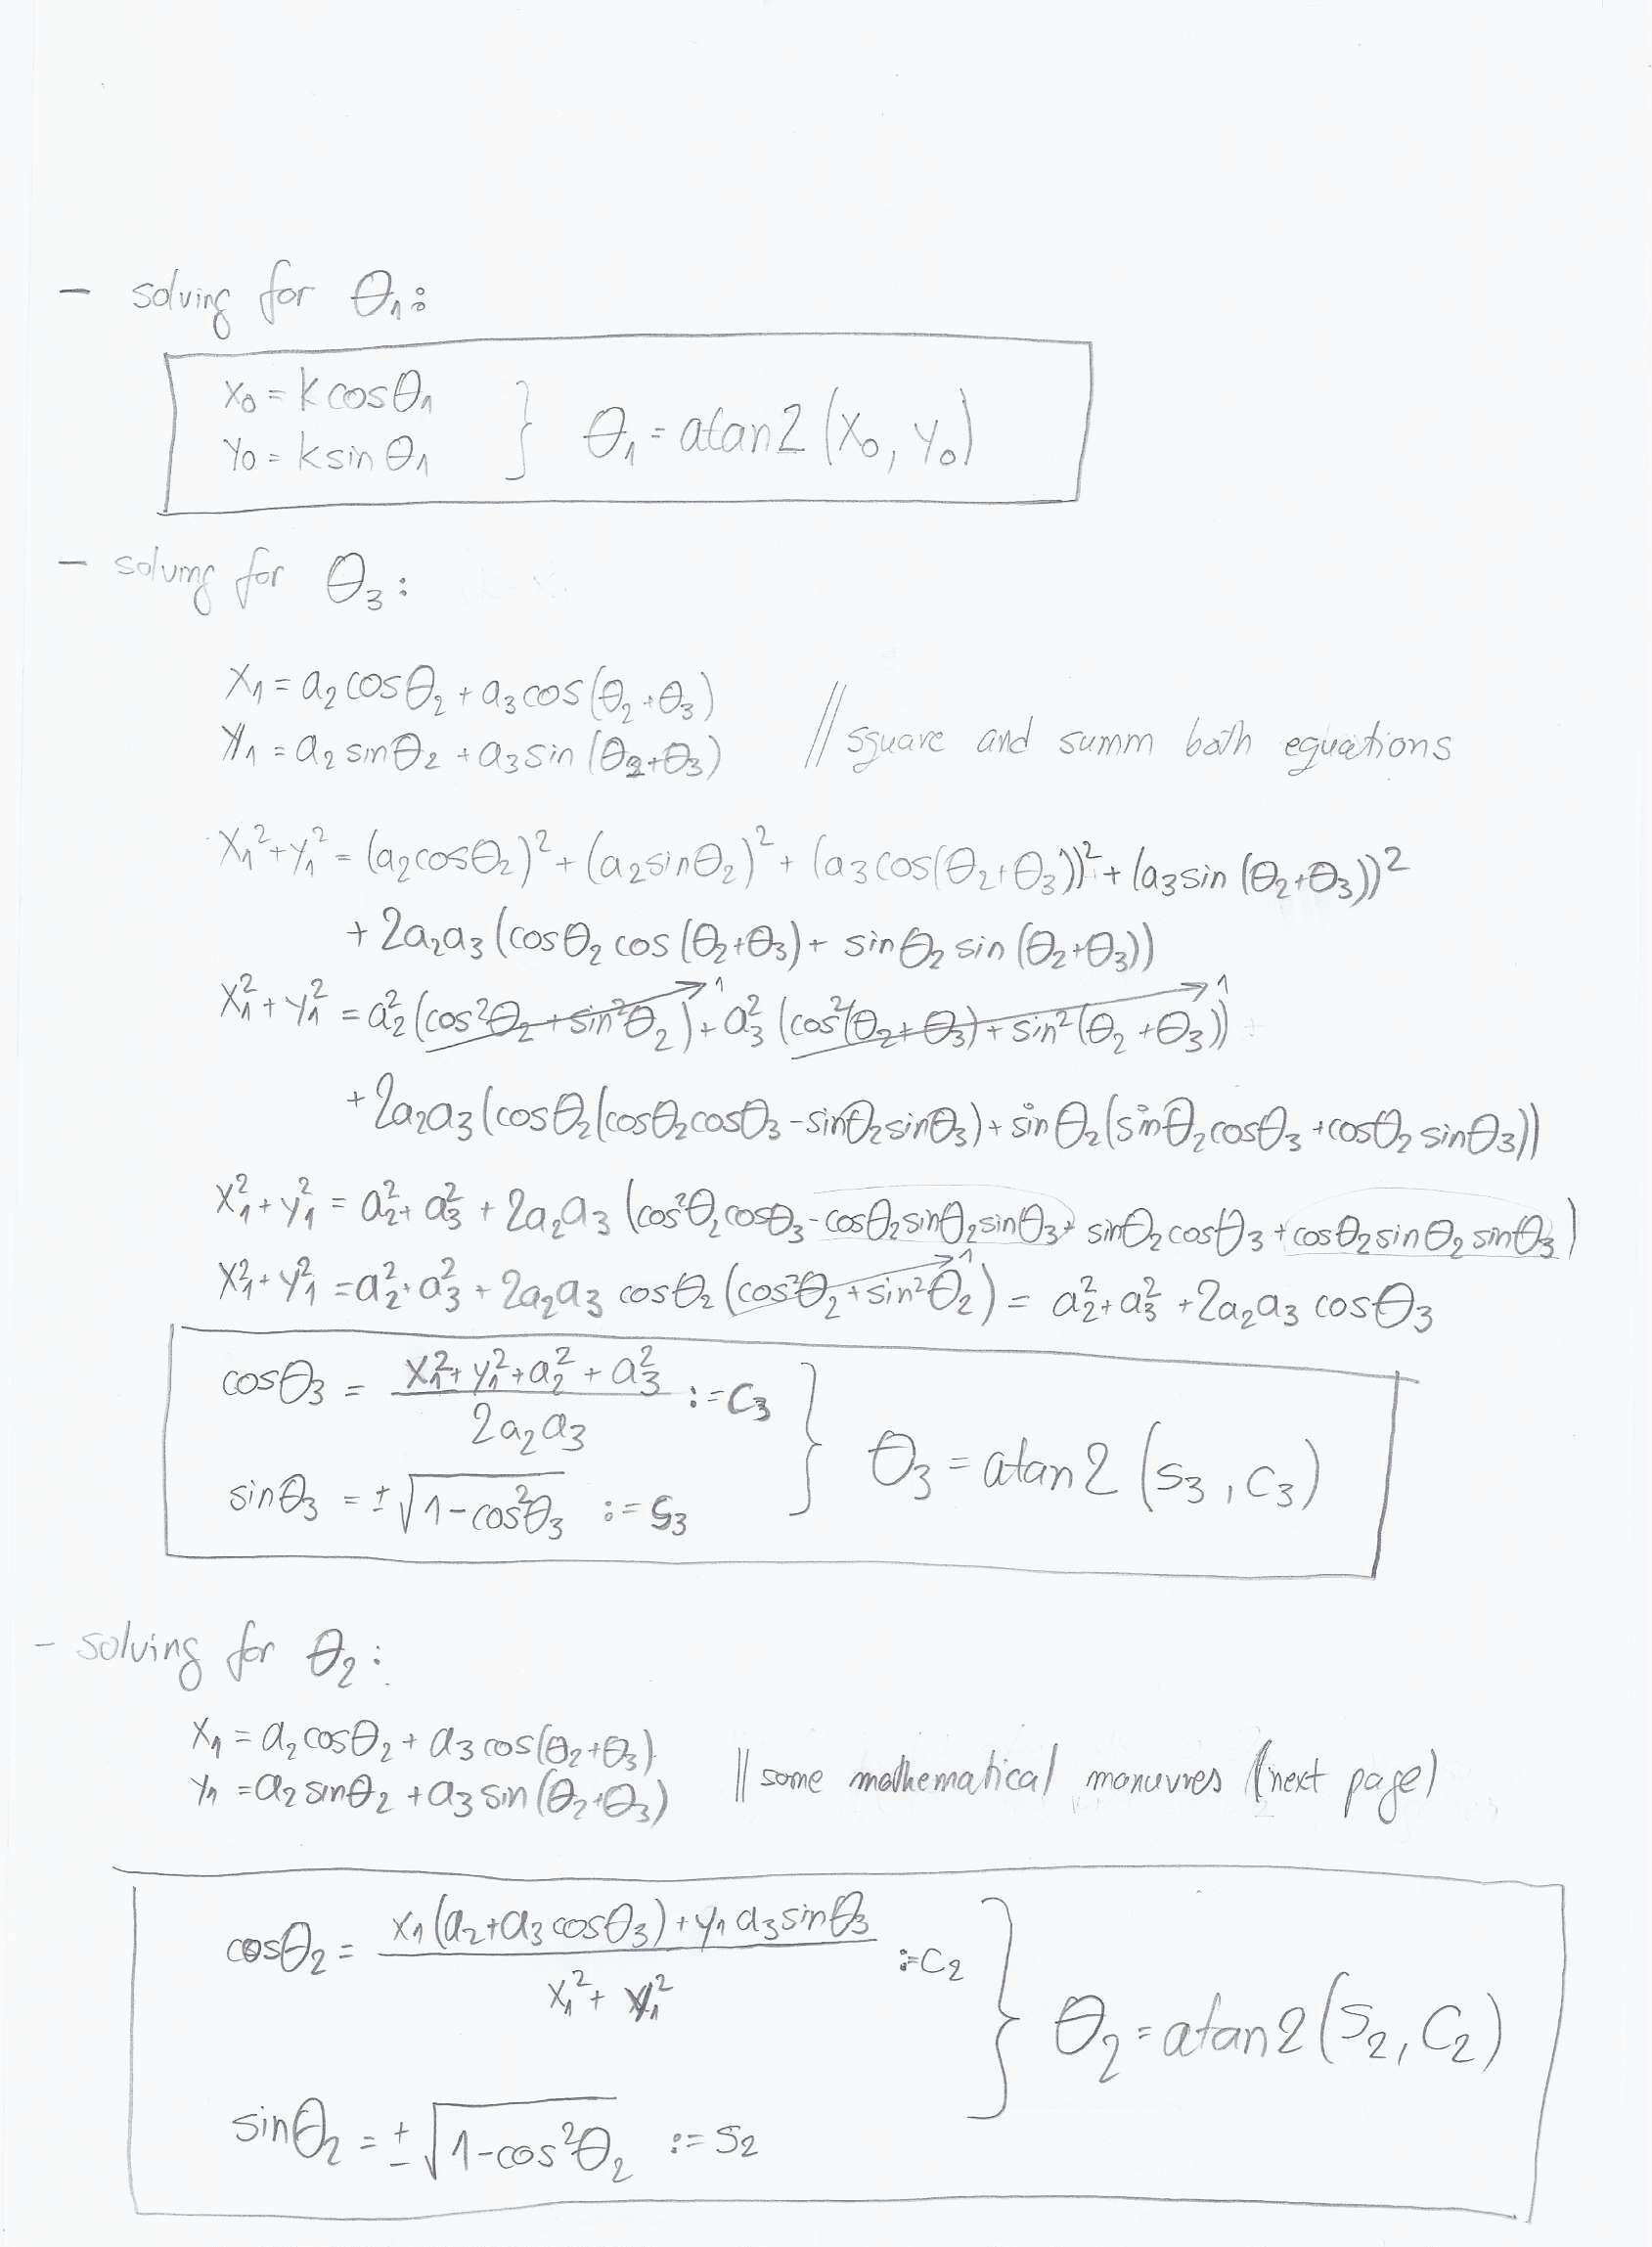 - solving for θ₁:
x₀ = k cosθ₁
y₀ = k sin θ₁ } θ₁ = atan2 (x₀, y₀)
- solving for θ₃:
x₁ = a₂ cosθ₂ + a₃ cos (θ₂+θ₃)
y₁ = a₂ sinθ₂ + a₃ sin (θ₂+θ₃) // square and summ both equations
x₁² + y₁² = (a₂cosθ₂)² + (a₂sinθ₂)² + (a₃ cos(θ₂+θ₃))² + (a₃sin (θ₂+θ₃))²
+ 2a₂a₃ (cosθ₂ cos (θ₂+θ₃) + sinθ₂ sin (θ₂+θ₃))
x₁² + y₁² = a₂² (cos²θ₂ + sin²θ₂)→1 + a₃² (cos²(θ₂+θ₃) + sin²(θ₂+θ₃))→1
+ 2a₂a₃ (cosθ₂(cosθ₂cosθ₃ - sinθ₂sinθ₃) + sinθ₂(sinθ₂cosθ₃ + cosθ₂sinθ₃))
x₁² + y₁² = a₂² + a₃² + 2a₂a₃ (cos²θ₂cosθ₃ - cosθ₂sinθ₂sinθ₃ + sinθ₂cosθ₃ + cosθ₂sinθ₂sinθ₃)
x₁² + y₁² = a₂² + a₃² + 2a₂a₃ cosθ₂ (cos²θ₂ + sin²θ₂)→1 = a₂² + a₃² + 2a₂a₃ cosθ₃
cosθ₃ = (x₁² + y₁² + a₂² + a₃²) / 2a₂a₃ := c₃
sinθ₃ = ±√(1-cos²θ₃) := s₃ } θ₃ = atan2 (s₃, c₃)
- solving for θ₂:
x₁ = a₂cosθ₂ + a₃ cos(θ₂+θ₃)
y₁ = a₂ sinθ₂ + a₃ sin (θ₂+θ₃) // some mathematical manuvres (next page)
cosθ₂ = (x₁(a₂+a₃cosθ₃) + y₁a₃sinθ₃) / (x₁² + y₁²) := c₂
sinθ₂ = ±√(1-cos²θ₂) := s₂ } θ₂ = atan2 (s₂, c₂)